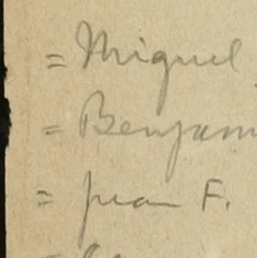 = Miguel
= Benjam
= Juan F.
=